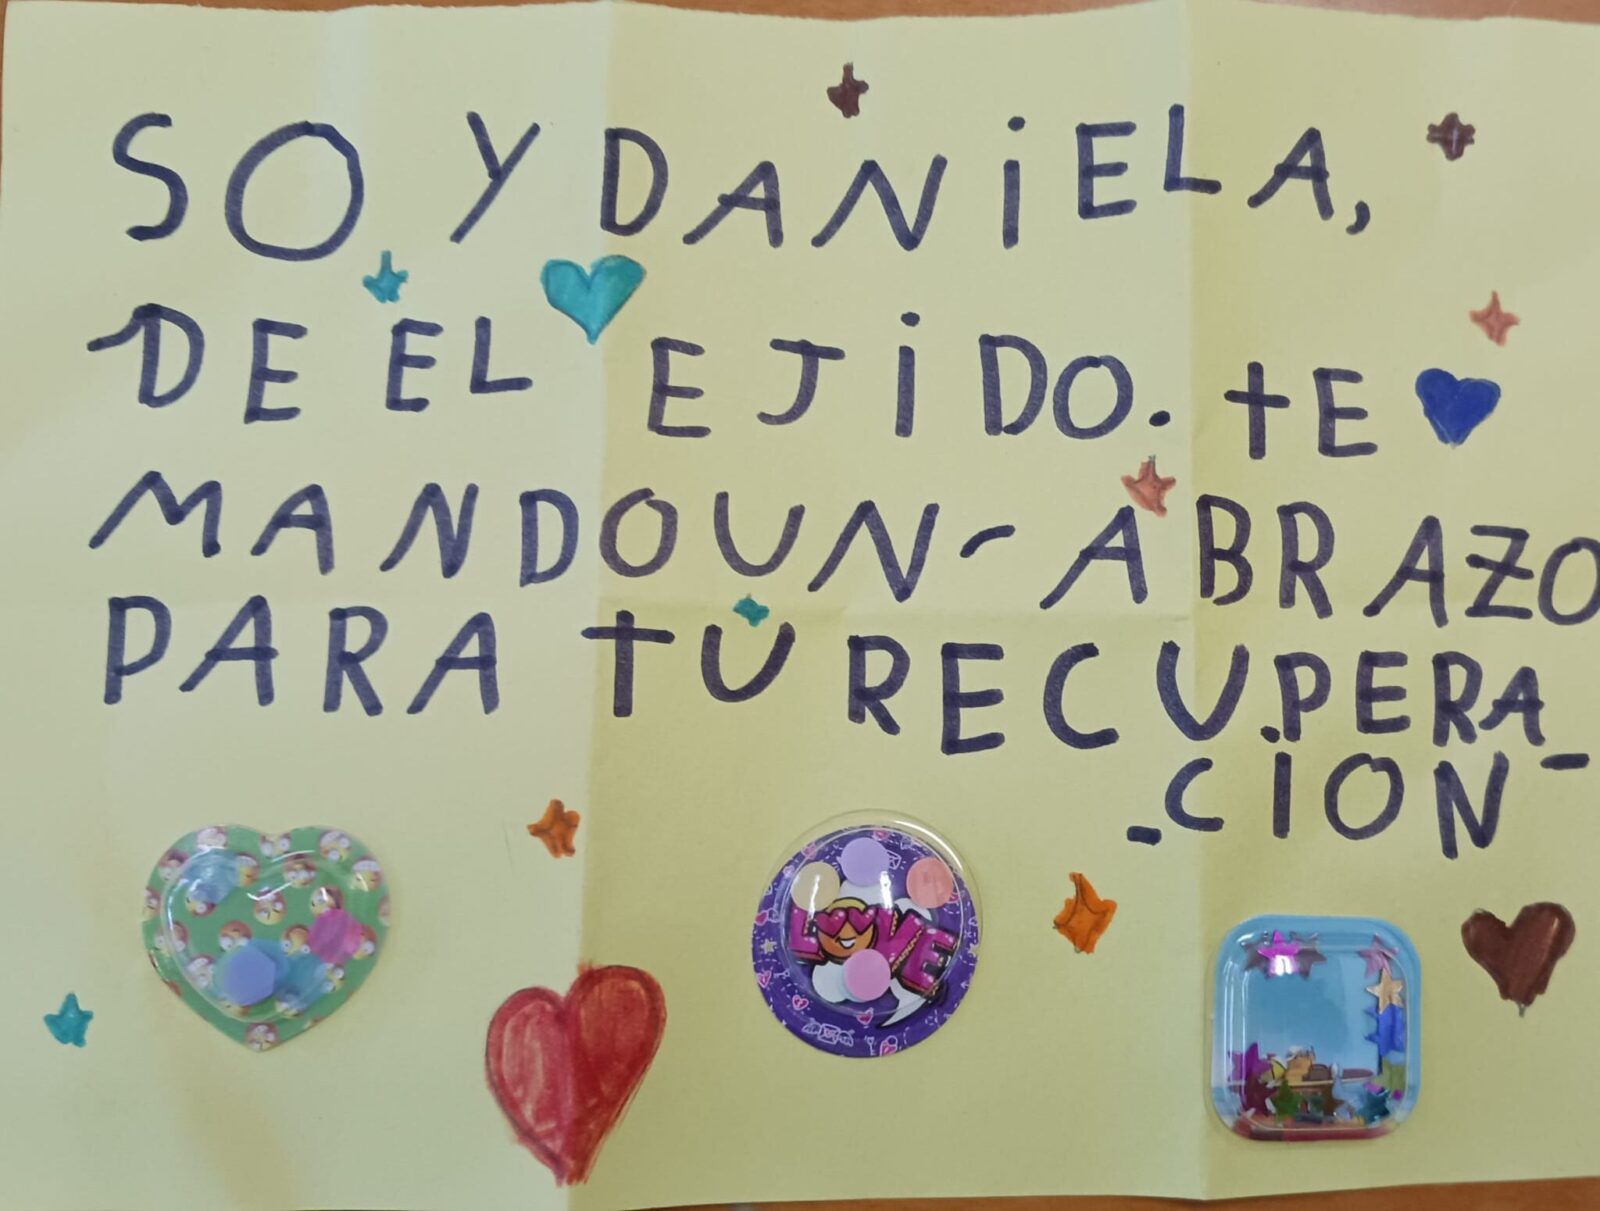 SOY DANiELA,
DE EL EJiDO. tE
MANDO UN - ABRAZO
PARA TU RECUPERA-
-CiON
LOVE